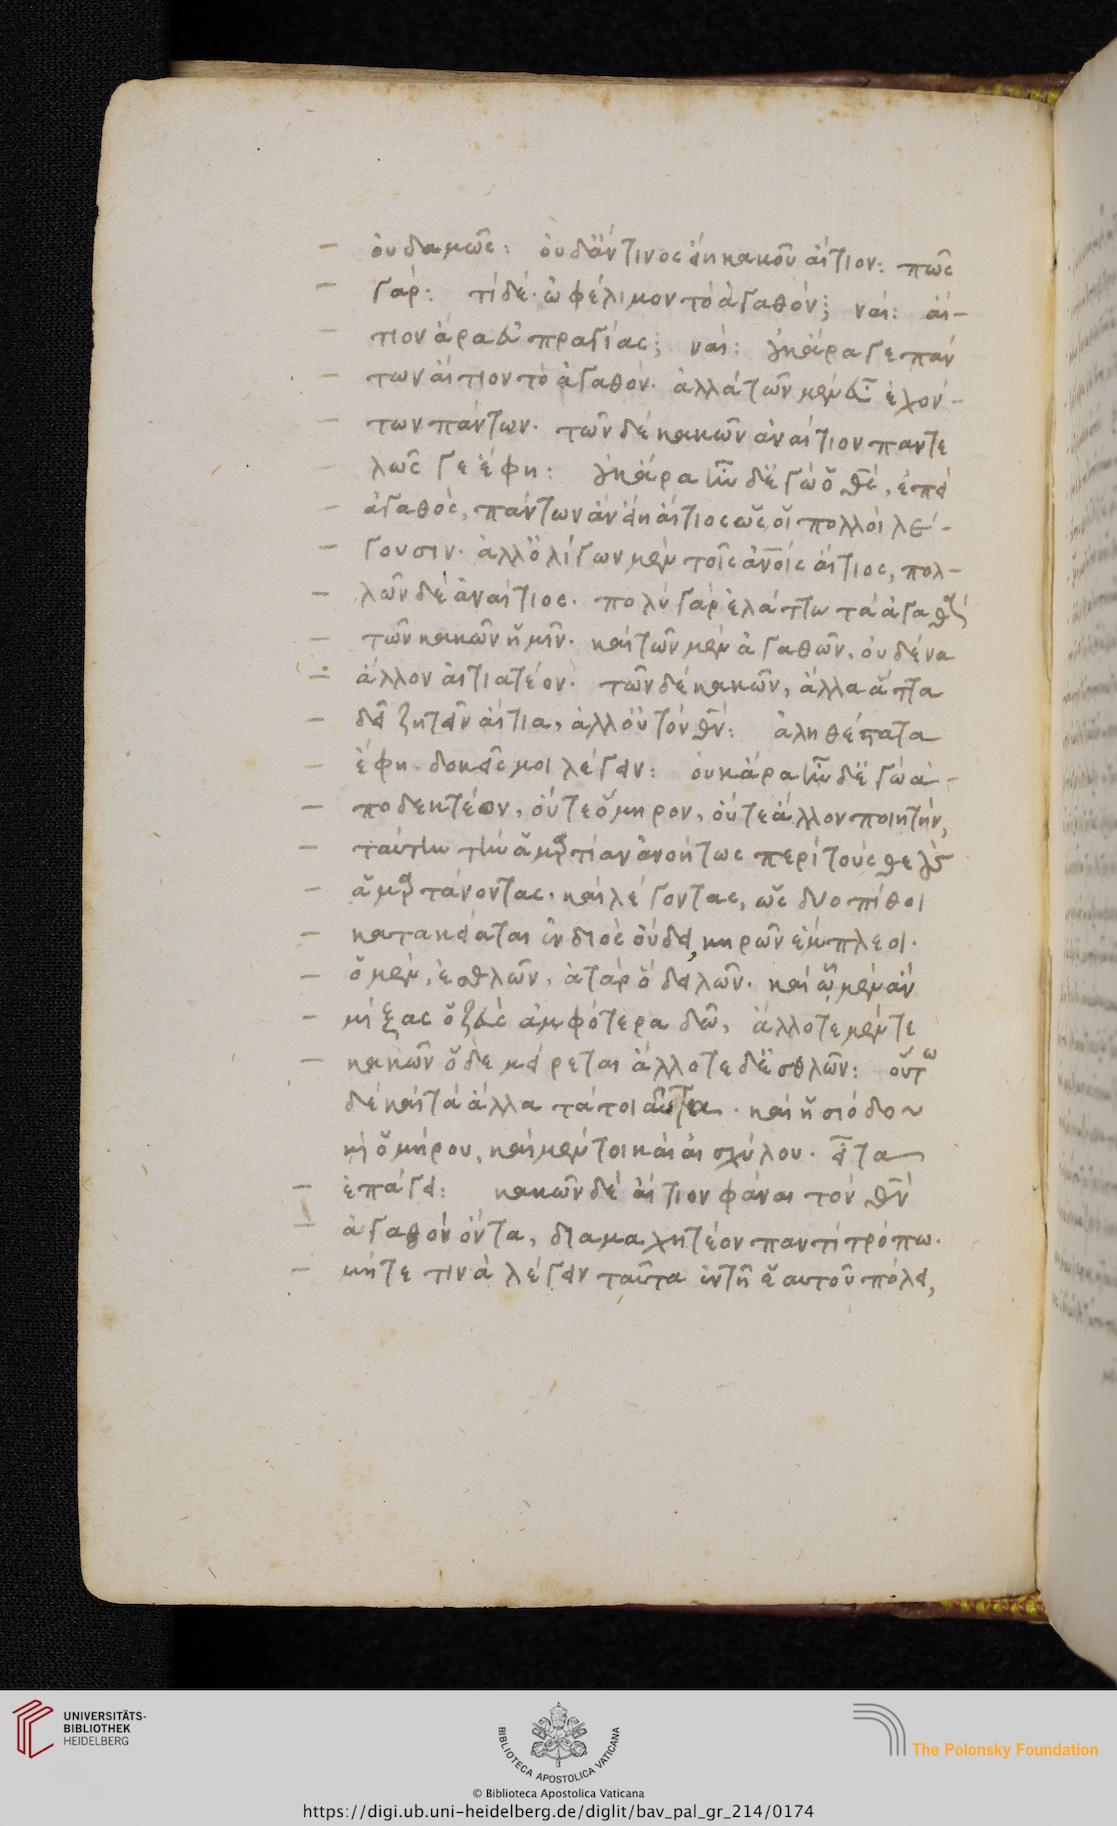 οὐδαμῶς: οὐδ' ἄν τινος εἴη κακοῦ αἴτιον: πῶς
γάρ: τί δέ· ὠφέλιμον τὸ ἀγαθόν; ναί: αἴ-
τιον ἄρα εὐπραγίας; ναί: οὐκ ἄρα γε πάν
των αἴτιον τὸ ἀγαθόν· ἀλλὰ τῶν μὲν εὖ ἐχόν-
των πάντων· τῶν δὲ κακῶν ἀναίτιον παντε
λῶς γε ἔφη: οὐκ ἄρα ἦν δ' ἐγὼ ὁ θς, ἐπεὶ
ἀγαθός, πάντων ἂν εἴη αἴτιος ὡς οἱ πολλοὶ λέ-
γουσιν· ἀλλ' ὀλίγων μὲν τοῖς ἀνοις αἴτιος, πολ-
λῶν δὲ ἀναίτιος· πολὺ γὰρ ἐλάττω τὰ ἀγαθὰ
τῶν κακῶν ἡμῖν· καὶ τῶν μὲν ἀγαθῶν, οὐδένα
ἄλλον αἰτιατέον· τῶν δὲ κακῶν, ἄλλα ἄττα
δεῖ ζητεῖν αἴτια, ἀλλ' οὐ τὸν θν: ἀληθέστατα
ἔφη δοκεῖς μοι λέγειν: οὐκ ἄρα ἦν δ' ἐγὼ ἀ-
ποδεκτέον, οὔτε ὁμήρου, οὔτε ἄλλου ποιητοῦ,
ταύτην τὴν ἁμαρτίαν ἀνοήτως περὶ τοὺς θεοὺς
ἁμαρτάνοντας· καὶ λέγοντας, ὡς δυο πίθοι
κατακείαται ἐν διὸς οὔδει, κηρῶν ἔμπλεοι·
ὁ μὲν, ἐσθλῶν, ἀτὰρ ὁ δειλῶν· καὶ ᾧ μὲν ἂν
μίξας ὁ ζεὺς ἀμφότερα δῷ, ἄλλοτε μέν τε
κακῶν ὅδε μείρεται ἄλλοτε δ' ἐσθλῶν: οὕτω
δὲ καὶ τὰ ἄλλα τὰ τοιαῦτα· καὶ ἡσιόδου
καὶ ὁμήρου, καὶ μέντοι καὶ αἰσχύλου· εἶτα
ἐπάγει: κακῶν δὲ αἴτιον φάναι τὸν θν
ἀγαθὸν ὄντα, διαμαχητέον παντὶ τρόπω·
μήτε τινὰ λέγειν ταῦτα ἐν τῇ ἑαυτοῦ πόλει,
UNIVERSITÄTS-
BIBLIOTHEK
HEIDELBERG
BIBLIOTECA APOSTOLICA VATICANA
The Polonsky Foundation
© Biblioteca Apostolica Vaticana
https://digi.ub.uni-heidelberg.de/diglit/bav_pal_gr_214/0174